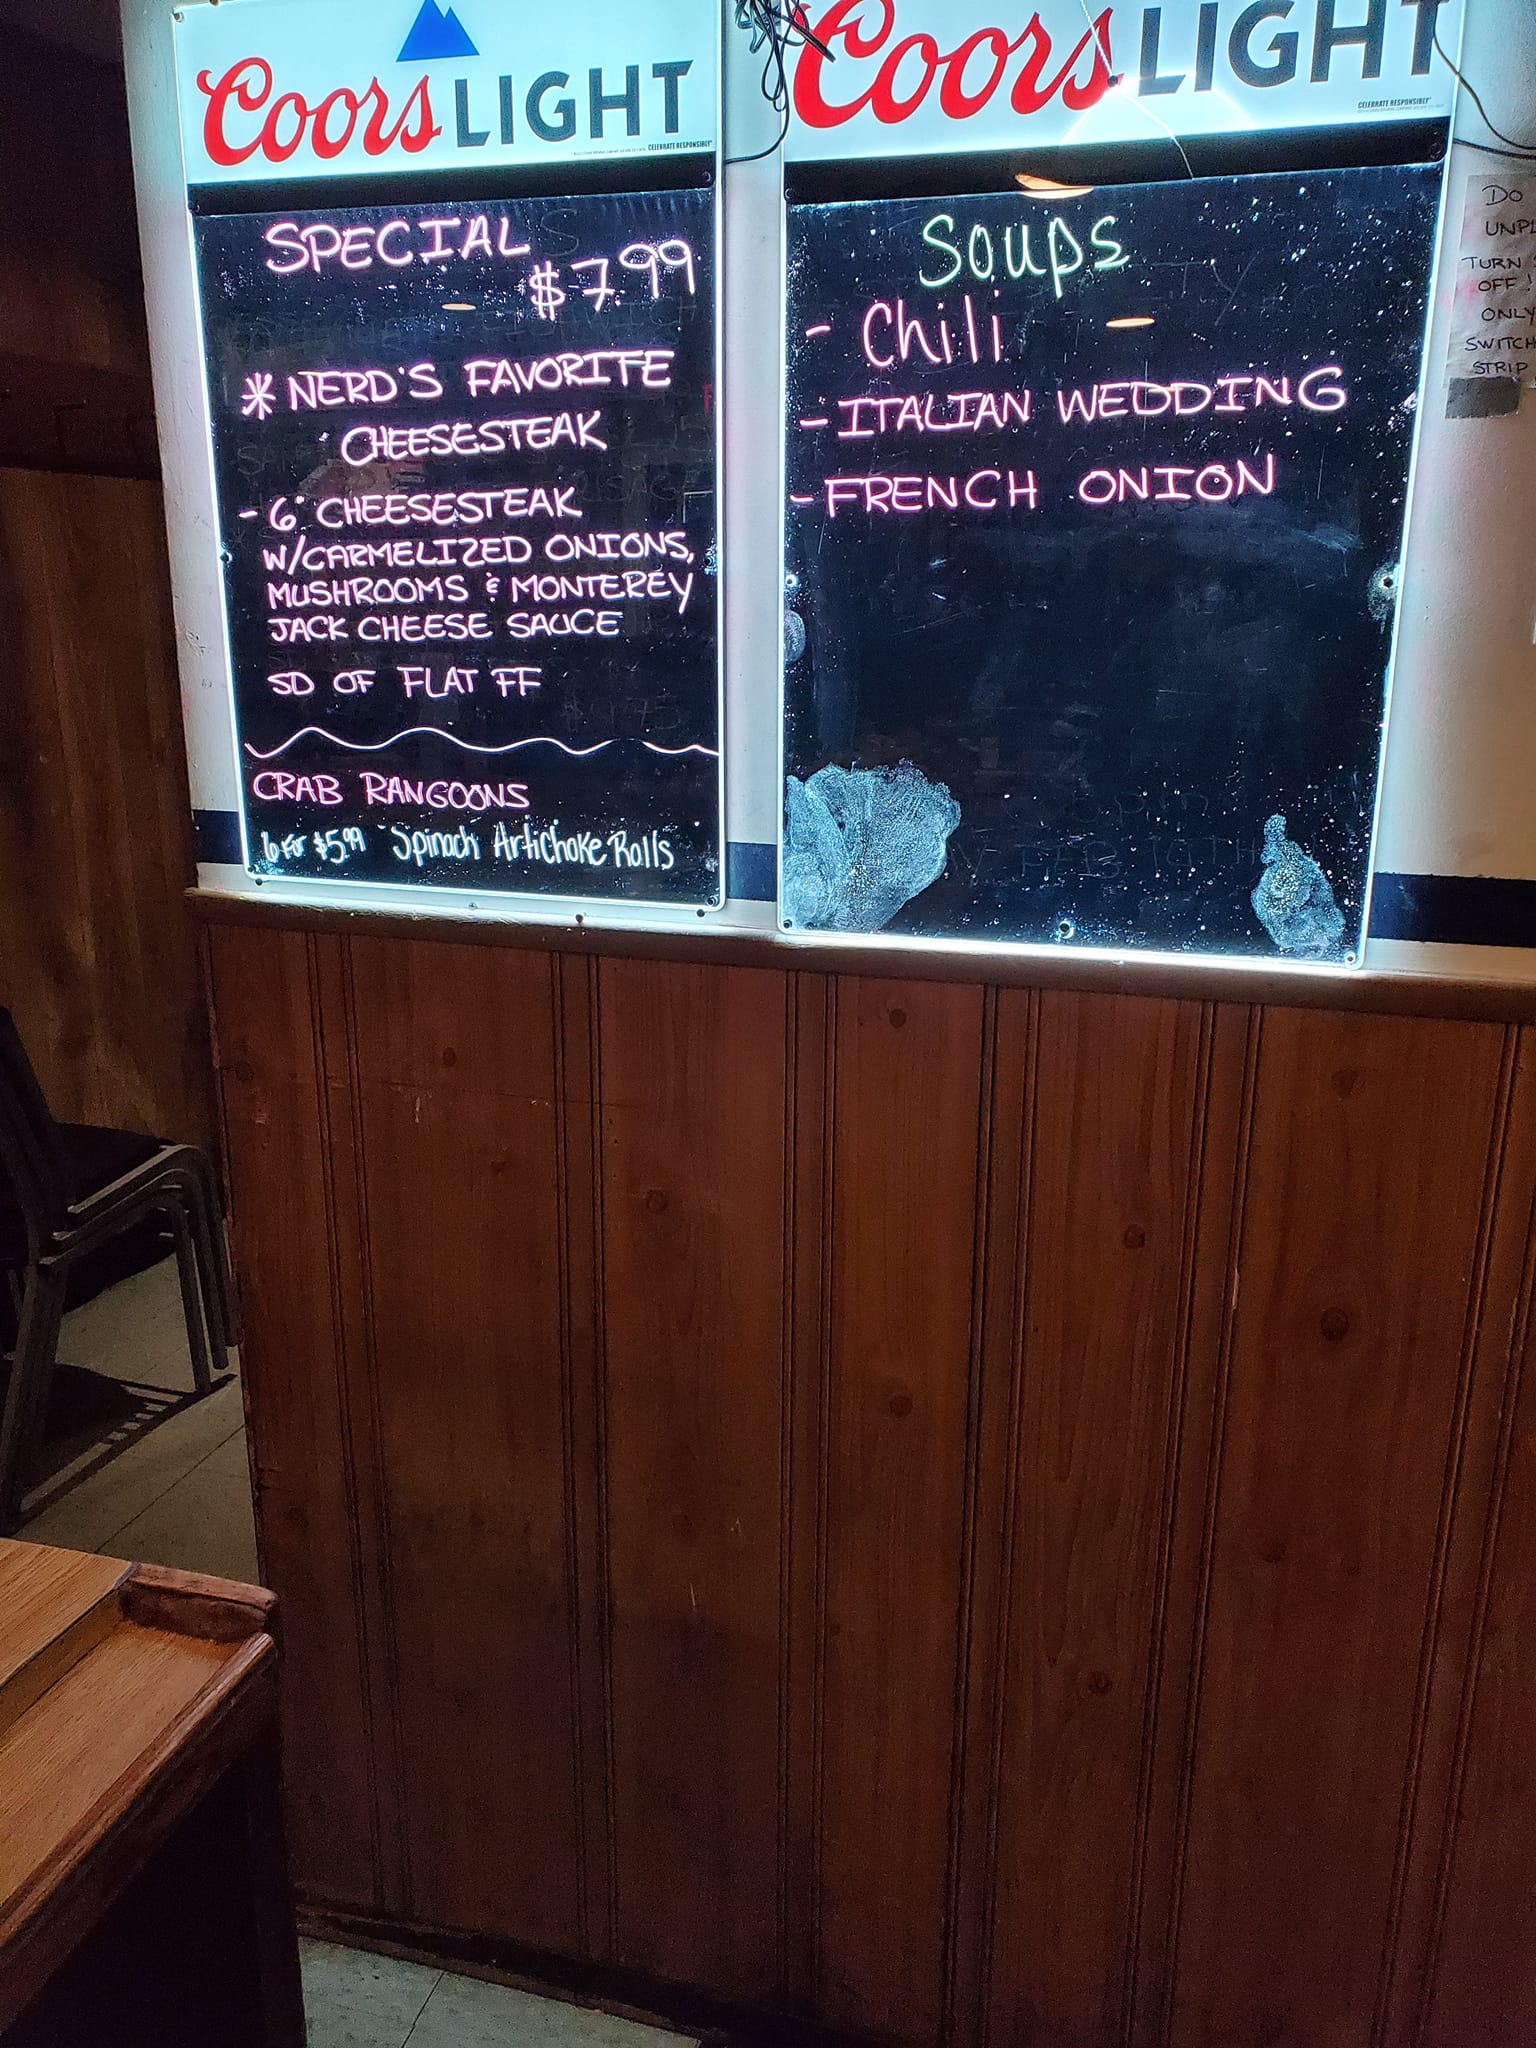 Coors LIGHT
CELEBRATE RESPONSIBLY
SPECIAL
$7.99
* NERD'S FAVORITE
CHEESESTEAK
- 6" CHEESESTEAK
W/CARMELIZED ONIONS,
MUSHROOMS & MONTEREY
JACK CHEESE SAUCE
SD OF FLAT FF
CRAB RANGOONS
6 For $5.99 Spinach Artichoke Rolls
Coors LIGHT
CELEBRATE RESPONSIBLY
Soups
- Chili
- ITALIAN WEDDING
- FRENCH ONION
DO
TURN
OFF!
ONLY
SWITCH
STRIP